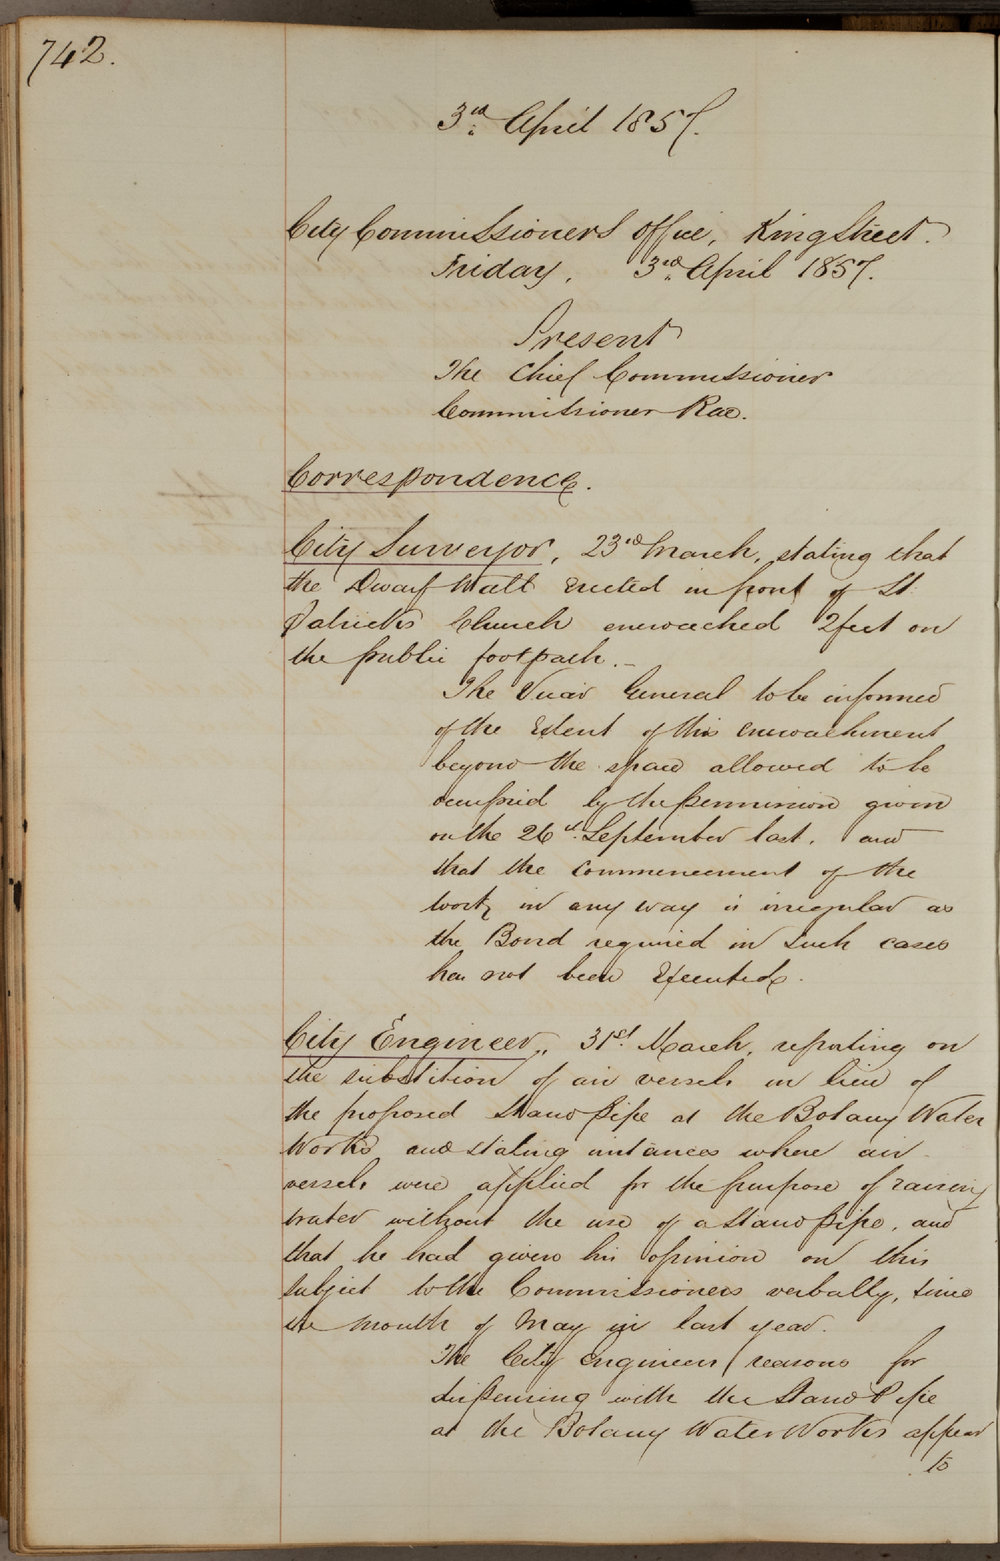 742.
3rd April 1857.
City Commissioners Office, King Street.
Friday, 3rd April 1857.
Present
The Chief Commissioner
Commissioner Rae.
Correspondence.
City Surveyor, 23rd March, stating that
the Dwarf Wall erected in front of St.
Patricks Church encroached 2 feet on
the public footpath.—
The Vicar General to be informed
of the Extent of this encroachment
beyond the space allowed to be
occupied by the permission given
on the 26th September last, and
that the commencement of the
work in any way is irregular as
the Bond required in such cases
has not been Executed.
City Engineer, 31st March, reporting on
the substition of air vessels in lieu of
the proposed Stand Pipe at the Botany Water
Works and stating instances where air
vessels were applied for the purpose of raising
water without the use of a Stand Pipe, and
that he had given his opinion on this
subject to the Commissioners verbally, since
the month of May in last year.
The City Engineers reasons for
dispensing with the Stand Pipe
at the Botany Water Works appear
to